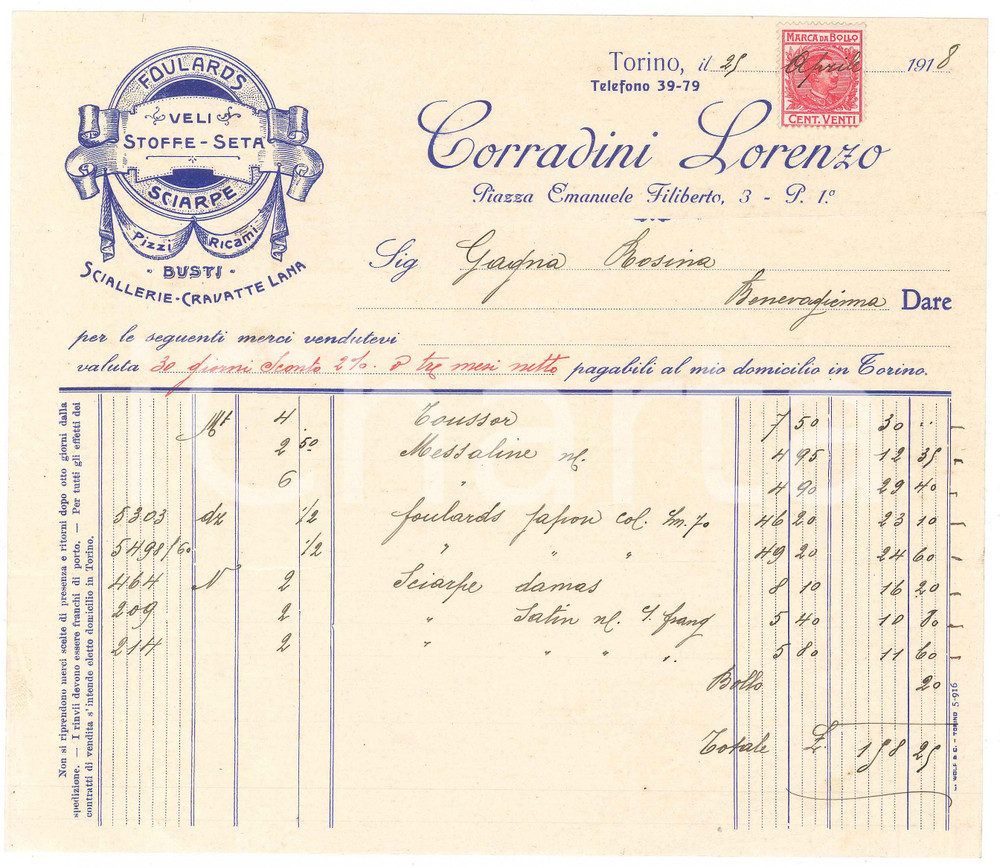 FOULARDS
VELI
STOFFE - SETA
SCIARPE
Pizzi Ricami
- BUSTI -
SCIALLERIE - CRAVATTE LANA
Torino, il 25 Aprile 1918
MARCA DA BOLLO
CENT. VENTI
Telefono 39-79
Corradini Lorenzo
Piazza Emanuele Filiberto, 3 - P. 1.º
Sig Gagna Rosina
Benevagienna Dare
per le seguenti merci vendutevi
valuta 30 giorni Sconto 2%. o tre mesi netto pagabili al mio domicilio in Torino.
Mt 4 Toussor 7 50 30 ..
2 50 Messaline nl. 4 95 12 35
6 " 4 90 29 40
5303 dz 1/2 foulards Japon col. Cm. 70 46 20 23 10
5498/60 1/2 " " " 49 20 24 60
464 N 2 Sciarpe damas 8 10 16 20
209 2 " Satin nl. S. frang 5 40 10 80
214 2 " " " ". 5 80 11 60
Bollo 20
Totale £ 158 25
Non si riprendono merci scelte di presenza e ritorni dopo otto giorni dalla
spedizione. — I rinvii devono essere franchi di porto. — Per tutti gli effetti dei
contratti di vendita s'intende eletto domicilio in Torino.
WOLF & C. - TORINO 5-916